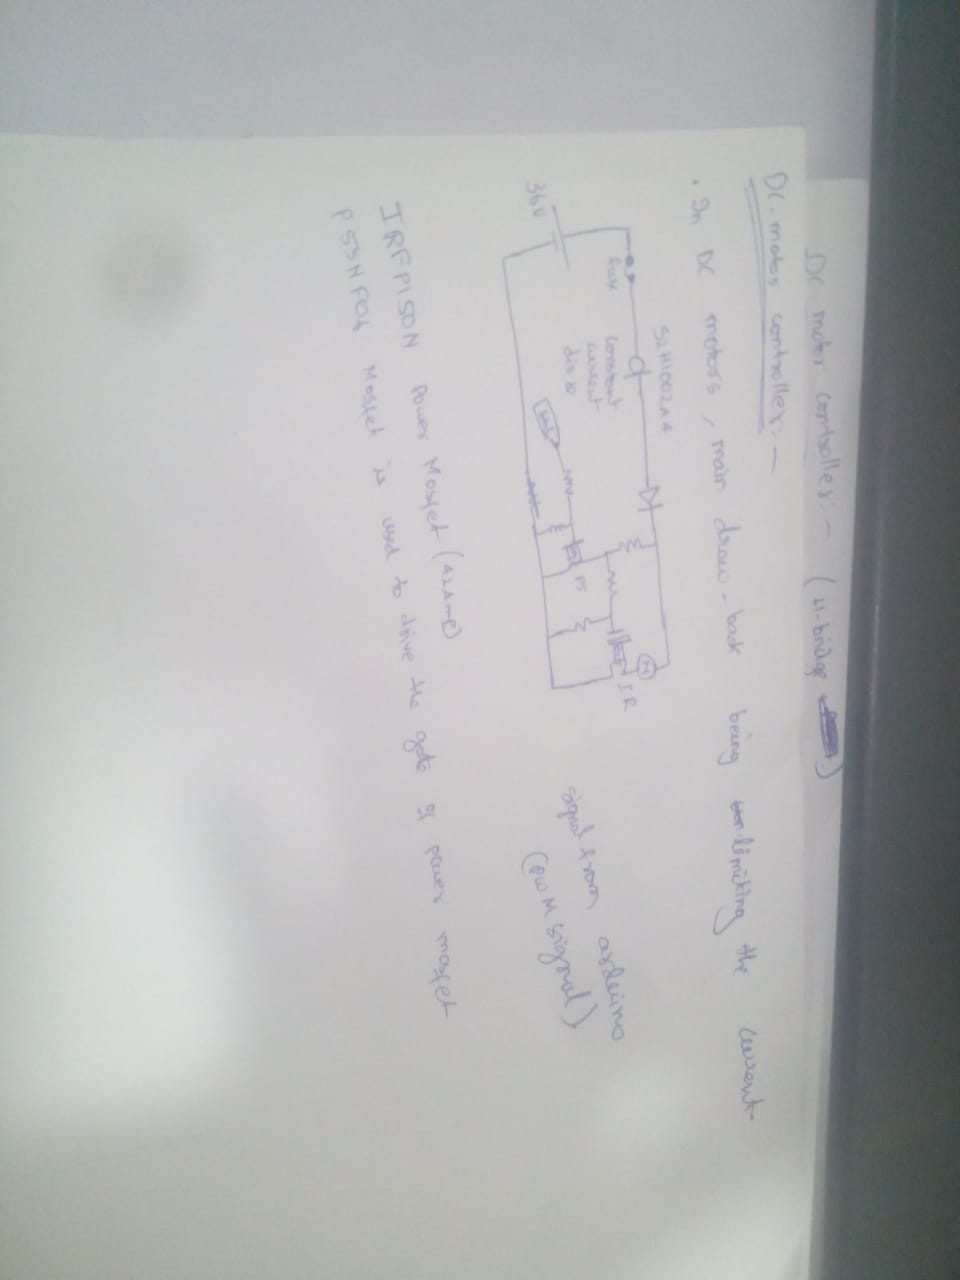 DC motor controller:- (H-bridge )
DC motor controller:-
. In DC motors, main draw-back being limiting the current
S2H1002A4
fuse
constant
current
diode
M
IR
PS
36V
signal from arduino
(PWM signal)
IRFP150N Power Mosfet (42Amp)
P55NF06 Mosfet is used to drive the gate of power mosfet